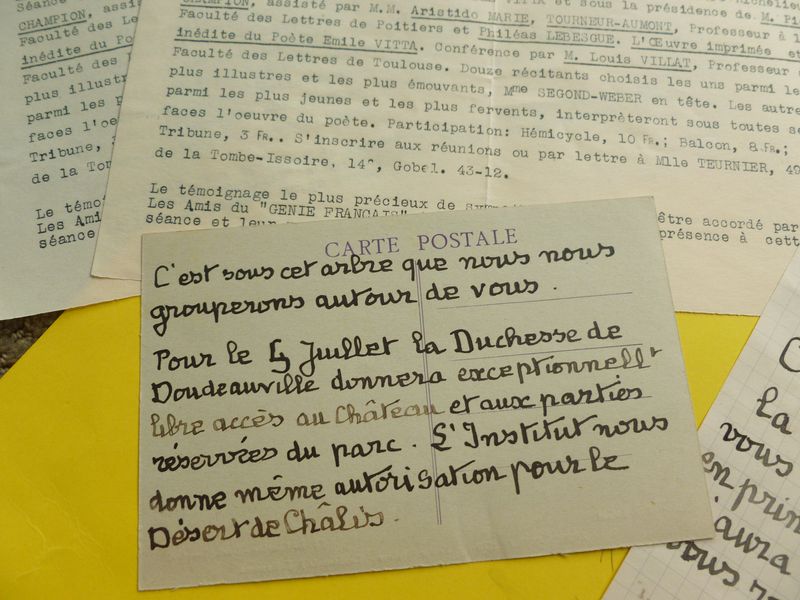 Séance
CHAMPION, assi
Faculté des Le
inédite du Po
Faculté des
plus illustr
parmi les p
faces l'oe
Tribune,
de la Tom
Le témoi
Les Ami
séance
et sous la présidence de M. Pi
CHAMPION, assisté par M.M. Aristido MARIE, TOURNEUR-AUMONT, Professeur à l
Faculté des Lettres de Poitiers et Philéas LEBESGUE. L'Œuvre imprimée et
inédite du Poète Emile VITTA. Conférence par M. Louis VILLAT, Professeur
Faculté des Lettres de Toulouse. Douze récitants choisis les uns parmi le
plus illustres et les plus émouvants, Mme SEGOND-WEBER en tête. Les autre
parmi les plus jeunes et les plus fervents, interprèteront sous toutes se
faces l'oeuvre du poète. Participation: Hémicycle, 10 Fr.; Balcon, 8 Fr.;
Tribune, 3 Fr.. S'inscrire aux réunions ou par lettre à Mlle TEURNIER, 49
de la Tombe-Issoire, 14^, Gobel. 43-12.
Le témoignage le plus précieux de être accordé par
Les Amis du "GENIE FRANCAIS" présence à cett
séance et leur
CARTE POSTALE
C'est sous cet arbre que nous nous
grouperons autour de vous.
Pour le 4 Juillet la Duchesse de
Doudeauville donnera exceptionnellt
libre accès au Château et aux parties
réservées du parc. L'Institut nous
donne même autorisation pour le
Désert de Châlis.
la
vous
en prin
aura
vous